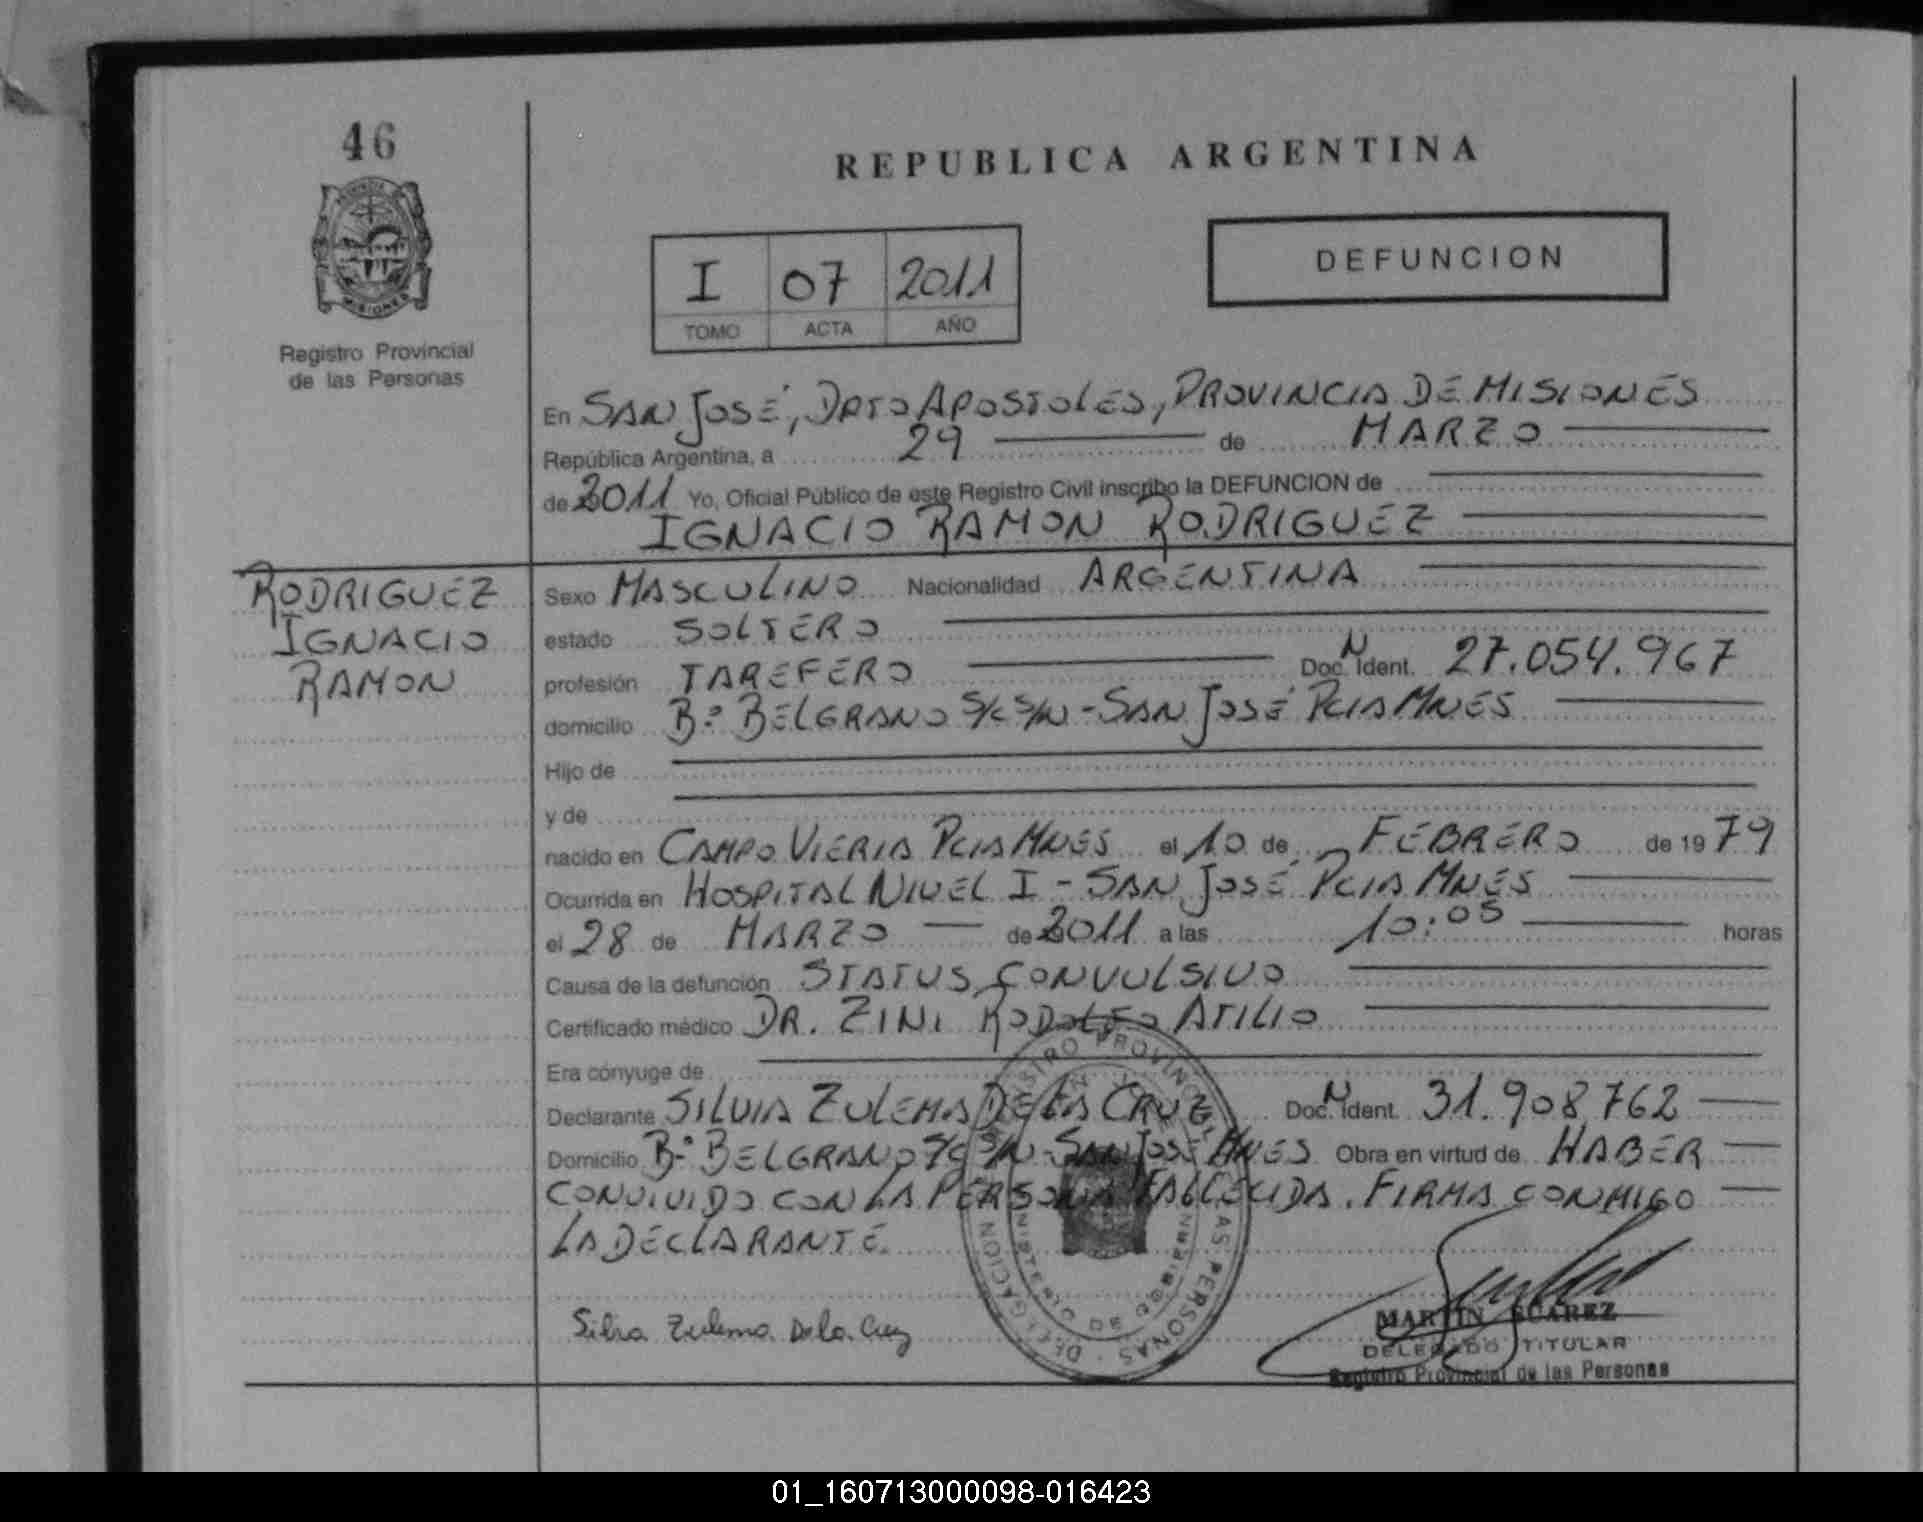 46
PROVINCIA DE
MISIONES
Registro Provincial
de las Personas
REPUBLICA ARGENTINA
I 07 2011
TOMO ACTA AÑO
DEFUNCION
En SAN JOSÉ, DPTO APOSTOLES, PROVINCIA DE MISIONES
República Argentina, a 29 de MARZO
de 2011 Yo, Oficial Público de este Registro Civil inscribo la DEFUNCION de
IGNACIO RAMON RODRIGUEZ
RODRIGUEZ
IGNACIO
RAMON
Sexo MASCULINO Nacionalidad ARGENTINA
estado SOLTERO
profesión TAREFERO Doc. N Ident. 27.054.967
domicilio Bº BELGRANO S/C S/N - SAN JOSÉ PCIA MNES
Hijo de
y de
nacido en CAMPO VIERIA PCIA MNES el 10 de FEBRERO de 1979
Ocurrida en HOSPITAL NIVEL I - SAN JOSÉ PCIA MNES
el 28 de MARZO de 2011 a las 10:05 horas
Causa de la defunción STATUS CONVULSIVO
Certificado médico DR. ZINI RODOLFO ATILIO
Era cónyuge de
Declarante SILVIA ZULEMA DE LA CRUZ Doc. N Ident. 31.908762
Domicilio Bº BELGRANO S/C S/N - SAN JOSE MNES Obra en virtud de HABER
CONVIVIDO CON LA PERSONA FALLECIDA. FIRMA CONMIGO
LA DECLARANTE.
REGISTRO PROVINCIAL LAS PERSONAS - DELEGACION
MINISTERIO DE GOBIERNO
Silvia Zulema De la Cruz
MARTIN SUAREZ
DELEGADO TITULAR
Registro Provincial de las Personas
01_160713000098-016423